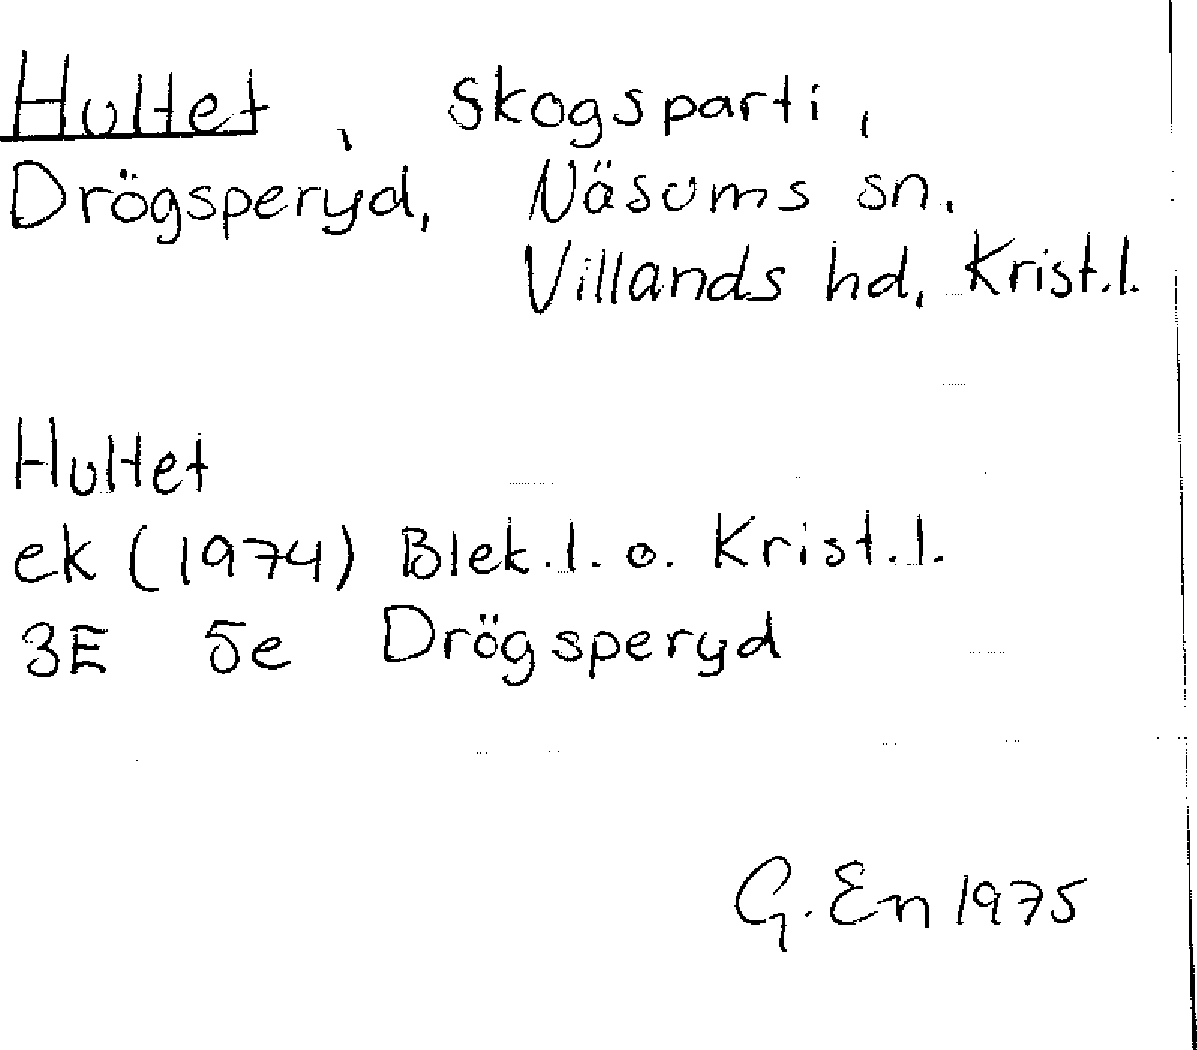 Hultet, skogsparti,
Drögsperyd, Näsums sn.
Villands hd, Krist.l.
Hultet
ek (1974) Blek.l. o. Krist.l.
3E 5e Drögsperyd
G. En 1975